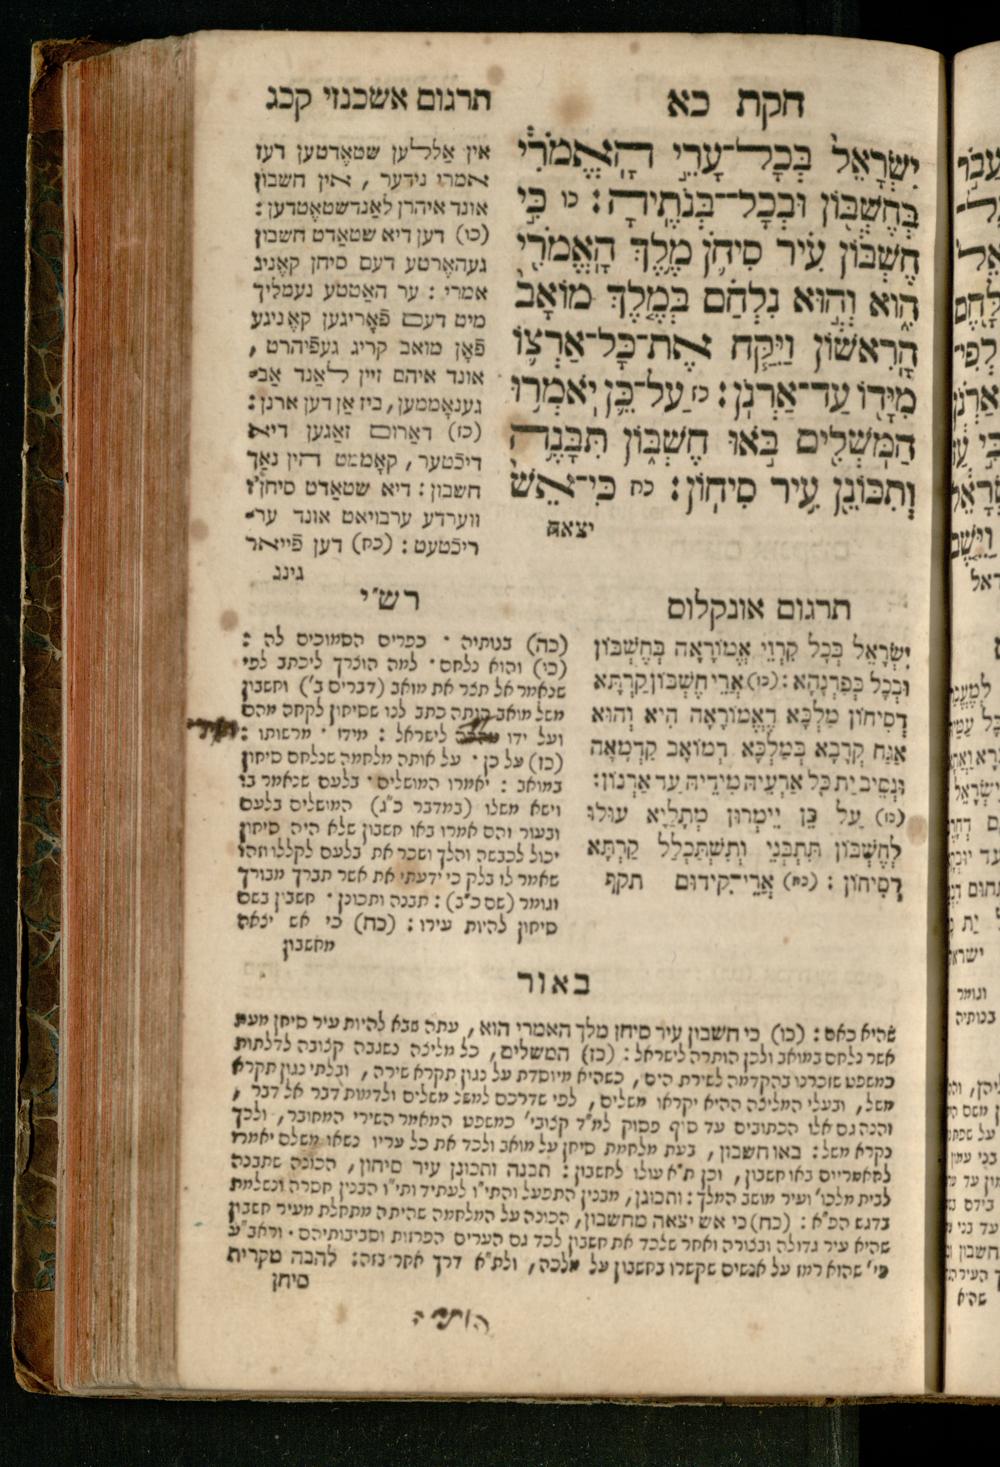 חקת כא
תרגום אשכנזי קכג
יִשְׂרָאֵל בְּכָל־עָרֵי הָאֱמֹרִי
בְּחֶשְׁבּוֹן וּבְכָל־בְּנֹתֶיהָ: כו כִּי
חֶשְׁבּוֹן עִיר סִיחֹן מֶלֶךְ הָאֱמֹרִי
הִוא וְהוּא נִלְחַם בְּמֶלֶךְ מוֹאָב
הָרִאשׁוֹן וַיִּקַּח אֶת־כָּל־אַרְצוֹ
מִיָּדוֹ עַד־אַרְנֹן: כז עַל־כֵּן יֹאמְרוּ
הַמֹּשְׁלִים בֹּאוּ חֶשְׁבּוֹן תִּבָּנֶה
וְתִכּוֹנֵן עִיר סִיחוֹן: כח כִּי־אֵשׁ
יצאה
אין אַללען שטאֶדטען דעז
אמרו נידער , אין חשבון
אונד איהרן לאַנדשטאֶטדען:
(כו) דען דיא שטאַדט חשבון
געהאָרטע דעם סיחן קאֶניג
אמרי : ער האַטטע נעמליך
מיט דעם פֿאָריגען קאֶניגע
פֿאָן מואב קריג געפֿיהרט ,
אונד איהם זיין לאַנד אַב־
גענאָממען, ביז אַן דען ארנן:
(כז) דאַרום זאַגען דיא
דיכֿטער, קאָממט הין נאָך
חשבון: דיא שטאַדט סיחן'ז
ווערדע ערבויאט אונד ער־
ריכֿטעט: (כח) דען פֿייאר
גינג
תרגום אונקלוס
יִשְׂרָאֵל בְּכָל קִרְוֵי אֱמוֹרָאָה בְּחֶשְׁבּוֹן
וּבְכָל כַּפְרָנָהָא: (כו) אֲרֵי חֶשְׁבּוֹן קַרְתָּא
דְסִיחוֹן מַלְכָּא דֶאֱמוֹרָאָה הִיא וְהוּא
אֲגַח קְרָבָא בְּמַלְכָּא דְמוֹאָב קַדְמָאָה
וּנְסֵיב יַת כָּל אַרְעֵיהּ מִידֵיהּ עַד אַרְנוֹן:
(כז) עַל כֵּן יֵימְרוּן מְתָלַיָּא עוּלוּ
לְחֶשְׁבּוֹן תִּתְבְּנֵי וְתִשְׁתַּכְלֵל קַרְתָּא
דְסִיחוֹן : (כח) אֲרֵי־קִידוּם תַקִּף
רש״י
(כה) בנותיה · כפרים הסמוכים לה :
(כו) והוא נלחם · למה הוצרך ליכתב לפי
שנאמר אל תצר את מואב (דברים ב') וחשבון
משל מואב היתה כתב לנו שסיחון לקחה מהם
ועל ידו לישראל : מידו · מרשותו :
(כז) על כן · על אותה מלחמה שנלחם סיחון
במואב : יאמרו המושלים · בלעם שנאמר בו
וישא משלו (במדבר כ״ג) המושלים בלעם
ובעור והם אמרו באו חשבון שלא היה סיחון
יכול לכבשה והלך ושכר את בלעם לקללו וזהו
שאמר לו בלק כי ידעתי את אשר תברך מבורך
וגומר (שם כ״ב): תבנה ותכונן · חשבון בשם
סיחון להיות עירו: (כח) כי אש יצאה
מחשבון
באור
שהיא כאם: (כו) כי חשבון עיר סיחן מלך האמרי הוא, עתה צבא להיות עיר סיחן מעת
אשר נלחם במואב ולכן הותרה לישראל: (כז) המשלים, כל מליצה נשגבה קצובה לדלתות
כמשפט שזכרנו בהקדמה לשירת הים, כשהיא מיוסדת על נגון תקרא שירה, ובלתי נגון תקרא
משל, ובעלי המליצה ההיא יקראו משלים, לפי שדרכם למשל משלים ולדמות דבר אל דבר,
והנה גם אלו הכתובים עד סוף פסוק למ״ד קצובי' כמשפט המאמר השירי המחובר, ולכך
נקרא משל: באו חשבון, בעת מלחמת סיחן על מואב ולכד את כל עריו נשאו משלם יאמרו
באו חשבון, וכן ת״א עולו לחשבון: תבנה ותכונן עיר סיחון, הכונה שתבנה
לבית מלכו' ועיר מושב המלך: ותכונן, מבנין התפעל והתי״ו לעתיד ותי״ו הבנין חסרה ונשלמת
בדגש הפ״א: (כח) כי אש יצאה מחשבון, הכונה על המלחמה שהיתה מתחלת מעיר חשבון
שהיא עיר גדולה ובצורה ואחר שלכד את חשבון לכד גם הערים הפרזות וסביבותיהם · וראב״ע
פי' שהוא רמז על אנשים שקשרו בחשבון על מלכה, ולת״א דרך אחר בזה: להבה מקרית
סיחן